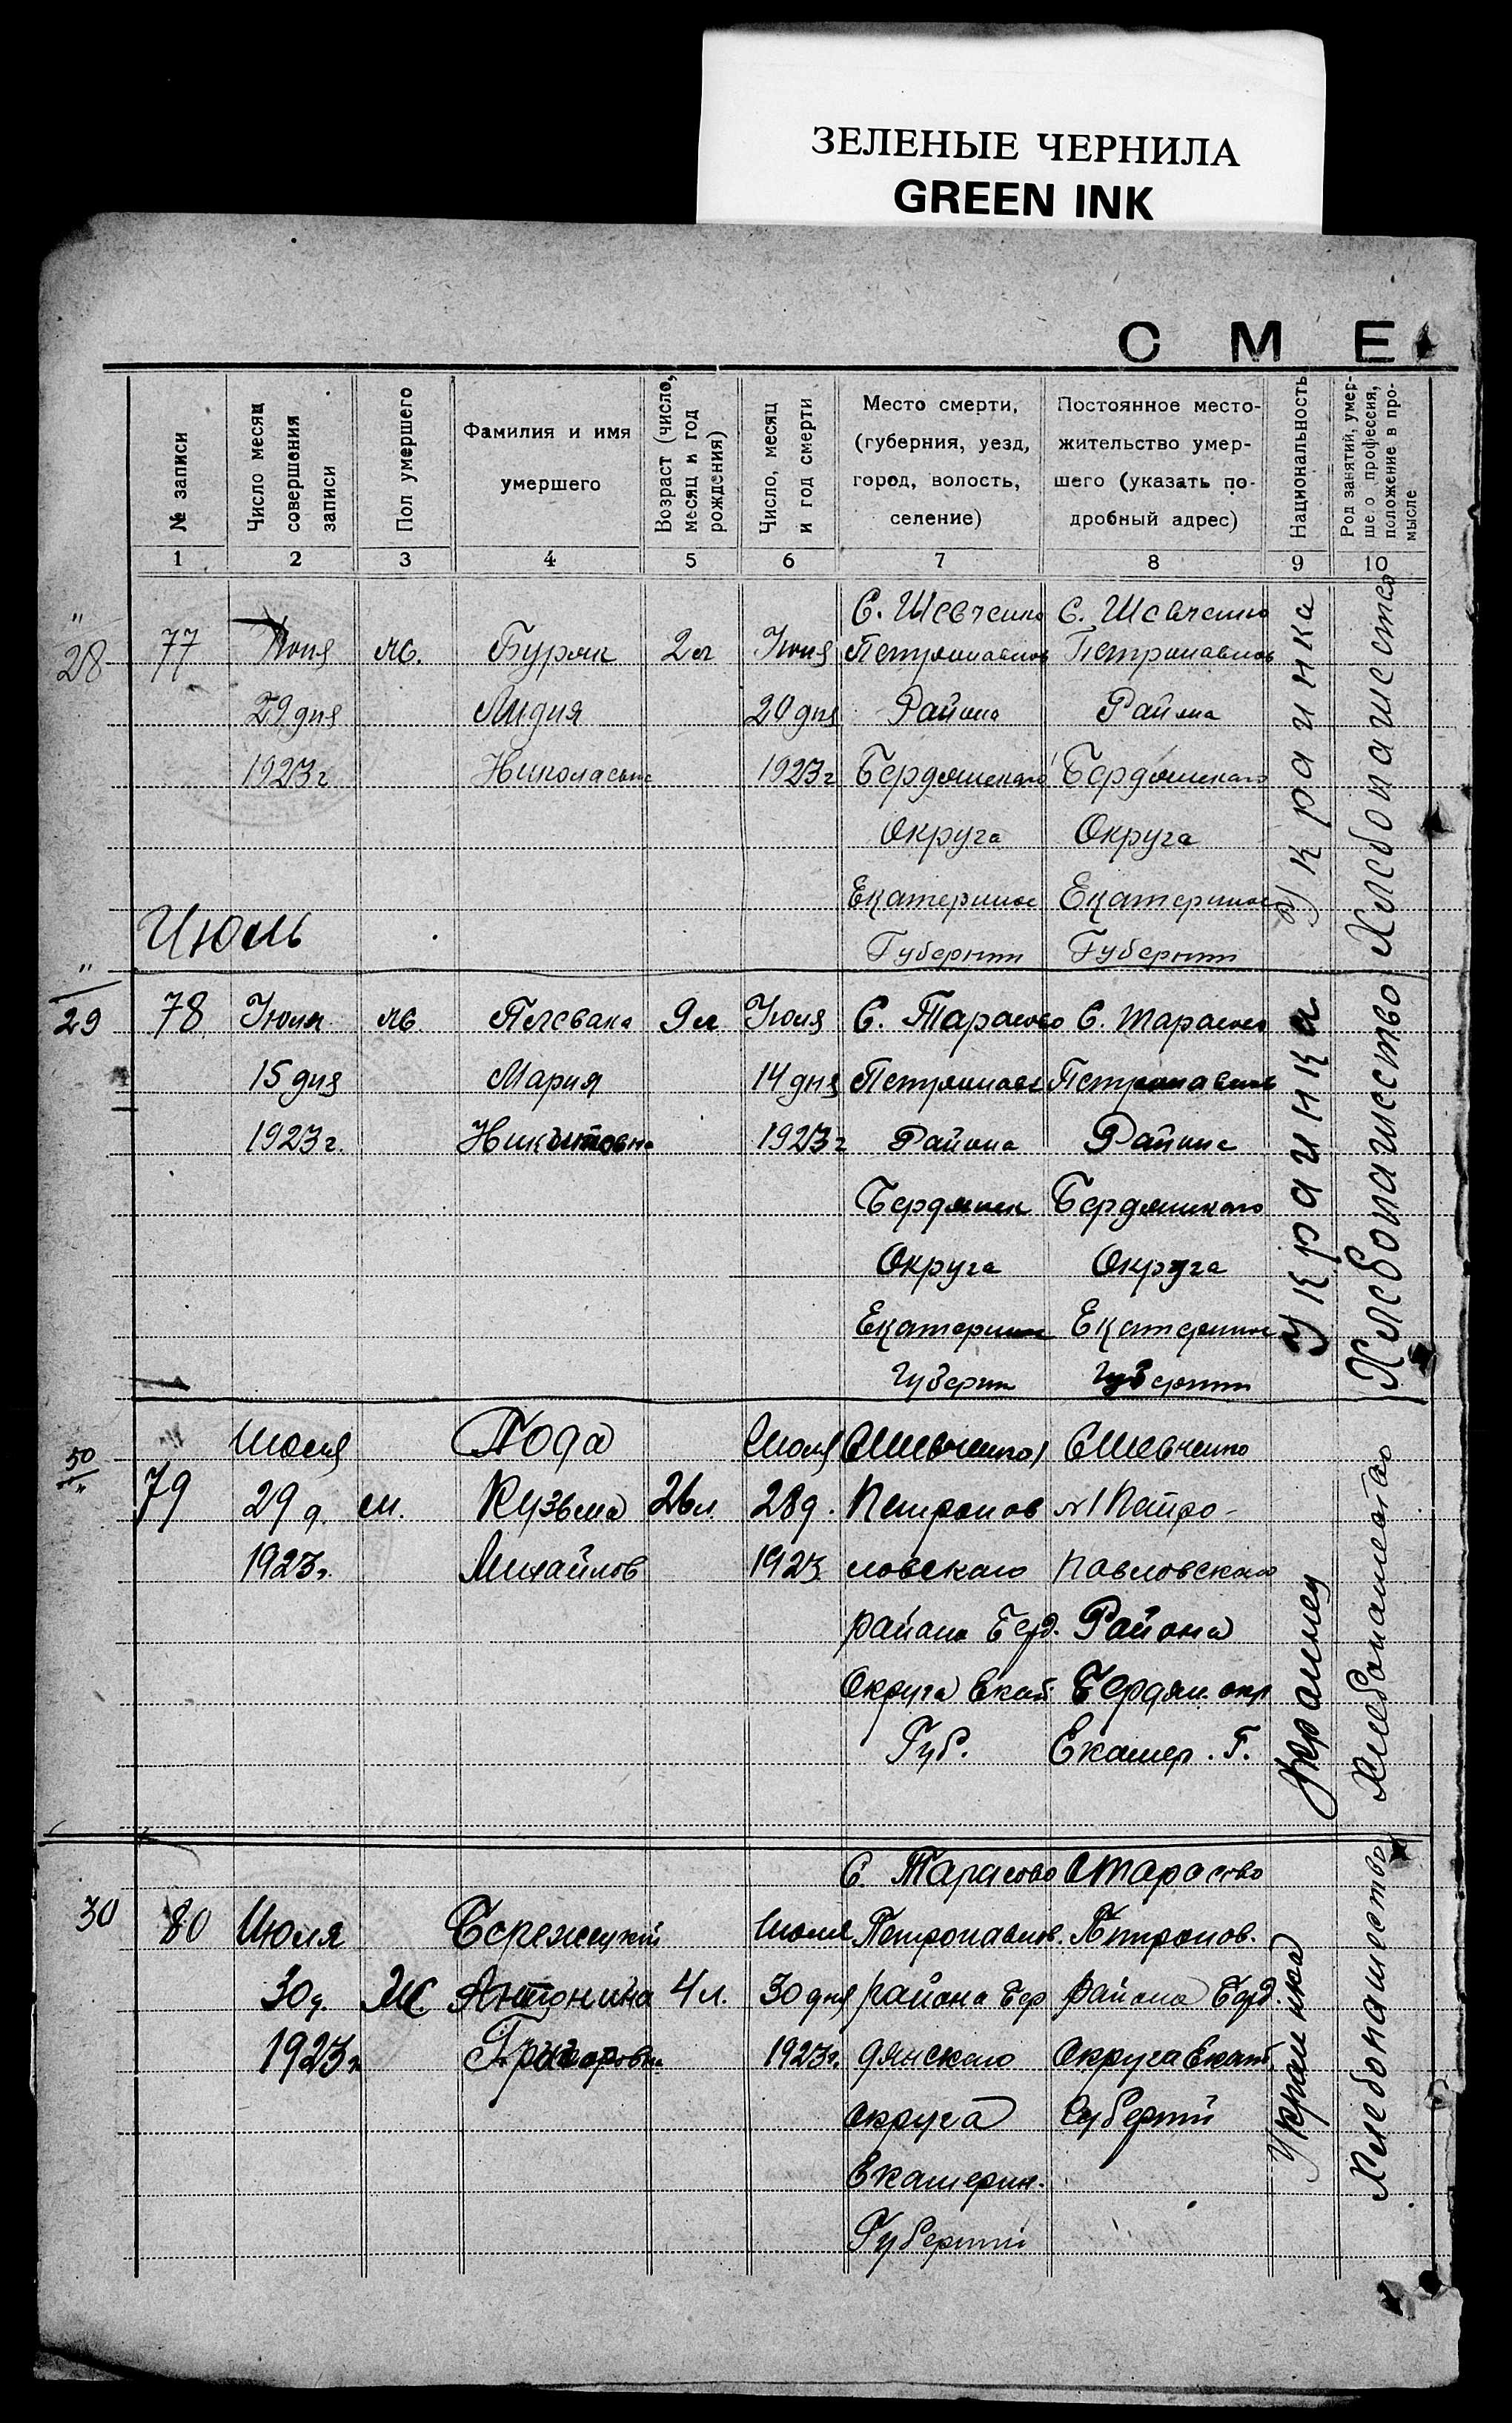 ЗЕЛЕНЫЕ ЧЕРНИЛА
GREEN INK
С М Е
№ записи
Число месяц совершения записи
Пол умершего
Фамилия и имя умершего
Возраст (число, месяц и год рождения)
Число, месяц и год смерти
Место смерти, (губерния, уезд, город, волость, селение)
Постоянное место-жительство умер-шего (указать по-дробный адрес)
Национальность
Род занятий, умер-шего профессия, положение в про-мысле
1 2 3 4 5 6 7 8 9 10
С. Шевченко С. Шевченко
28 77 Июня ж. Буряк 2 л Июня Петропавлов Петропавлов
29 дня Лидия 20 дня Района Района
1923 г Николаевн 1923 г Бердянского Бердянского
Округа Округа
Екатеринос Екатеринос
Губернии Губернии
Украинка
Хлебопашество
Июль
29 78 Июля ж Плевака 9 л Июля С. Тарасово С. Тарасово
15 дня Мария 14 дня Петропавл Петропавлов
1923 г. Никитовна 1923 г Района Района
Бердянск Бердянского
Округа Округа
Екатеринос Екатеринос
Губерни Губернии
Украинка
Хлебопашество
Июля Пода Июля С Шевченко 1 С Шевченко
50 79 29 д. м. Кузьма 26 л. 28 д. Петропов №1 Петро-
1923 г. Михайлов 1923 ловского Павловского
района Берд. Района
Округа Екат Бердян. окр
Губ. Екатер. Г.
Украинец
Хлебопашество
С. Тарасово С Тарасово
30 80 Июля Бережецкий Июля Петропавлов. Петропов.
30 д. Ж. Антонина 4 л. 30 дня района Бер района Берд.
1923 г. Григоровна 1923 г. дянского Округа Екат.
округа Губернии
Екатерин.
Губернии
Украинка
Хлебопашество